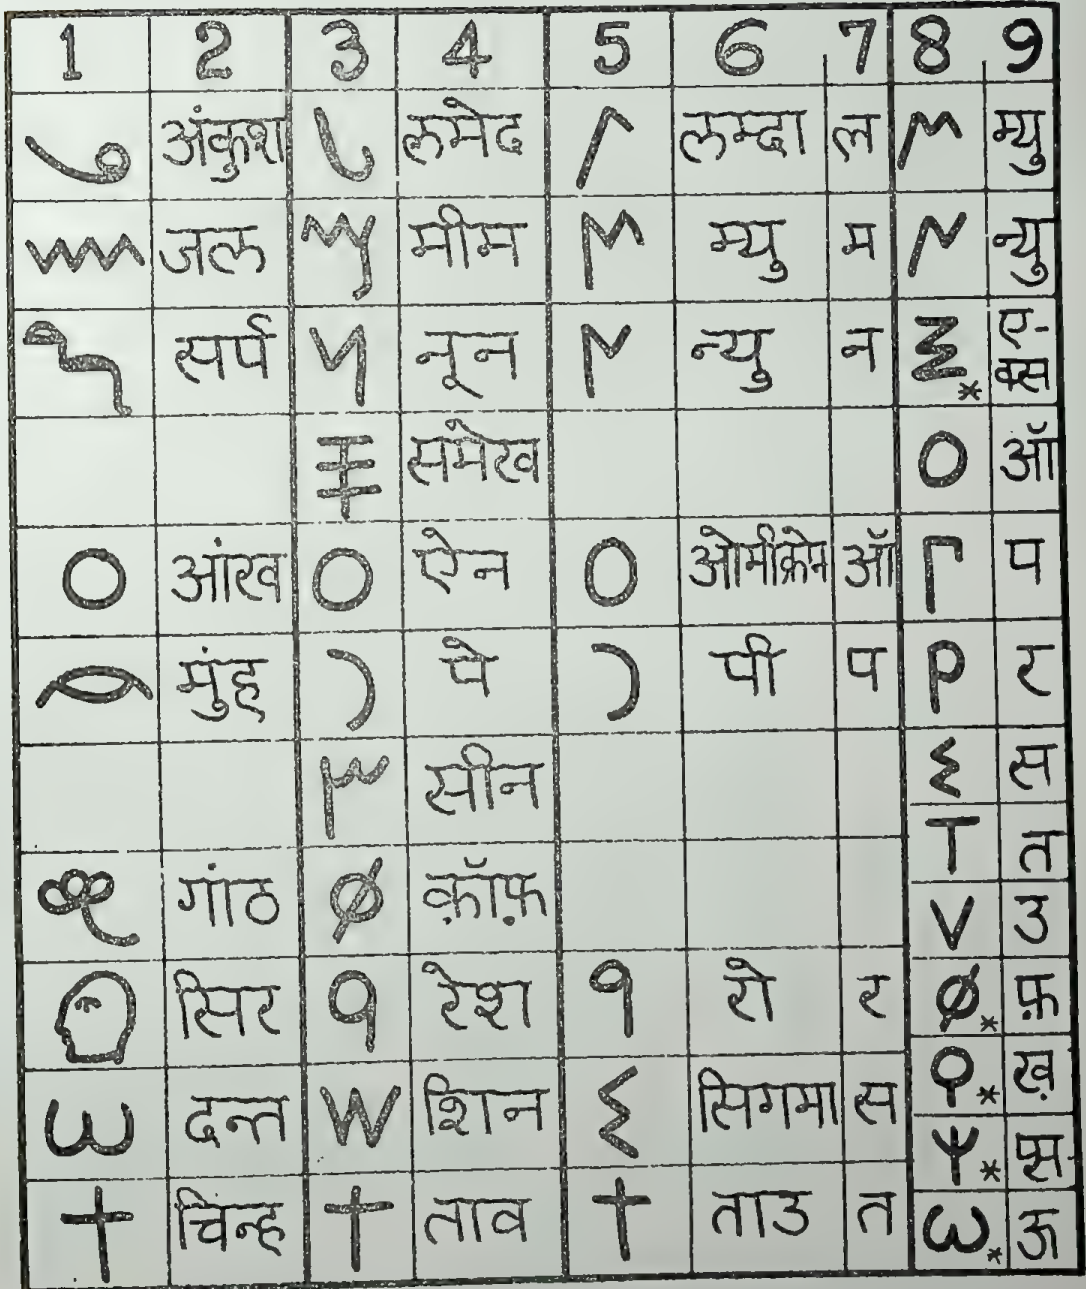 1 2 3 4 5 6 7 8 9
अंकुश लमेद लम्दा ल म्यु
जल मीम म्यु म न्यु
सर्प नून न्यु न * ए-
क्स
समेख ऑ
आंख ऐन ओमीक्रोम ऑ प
मुंह पे पी प र
सीन स
त
गांठ क़ॉफ़ उ
सिर रेश रो र * फ़
* ख़
दन्त शिन सिगमा स * प्स
चिन्ह ताव ताउ त * ऊ